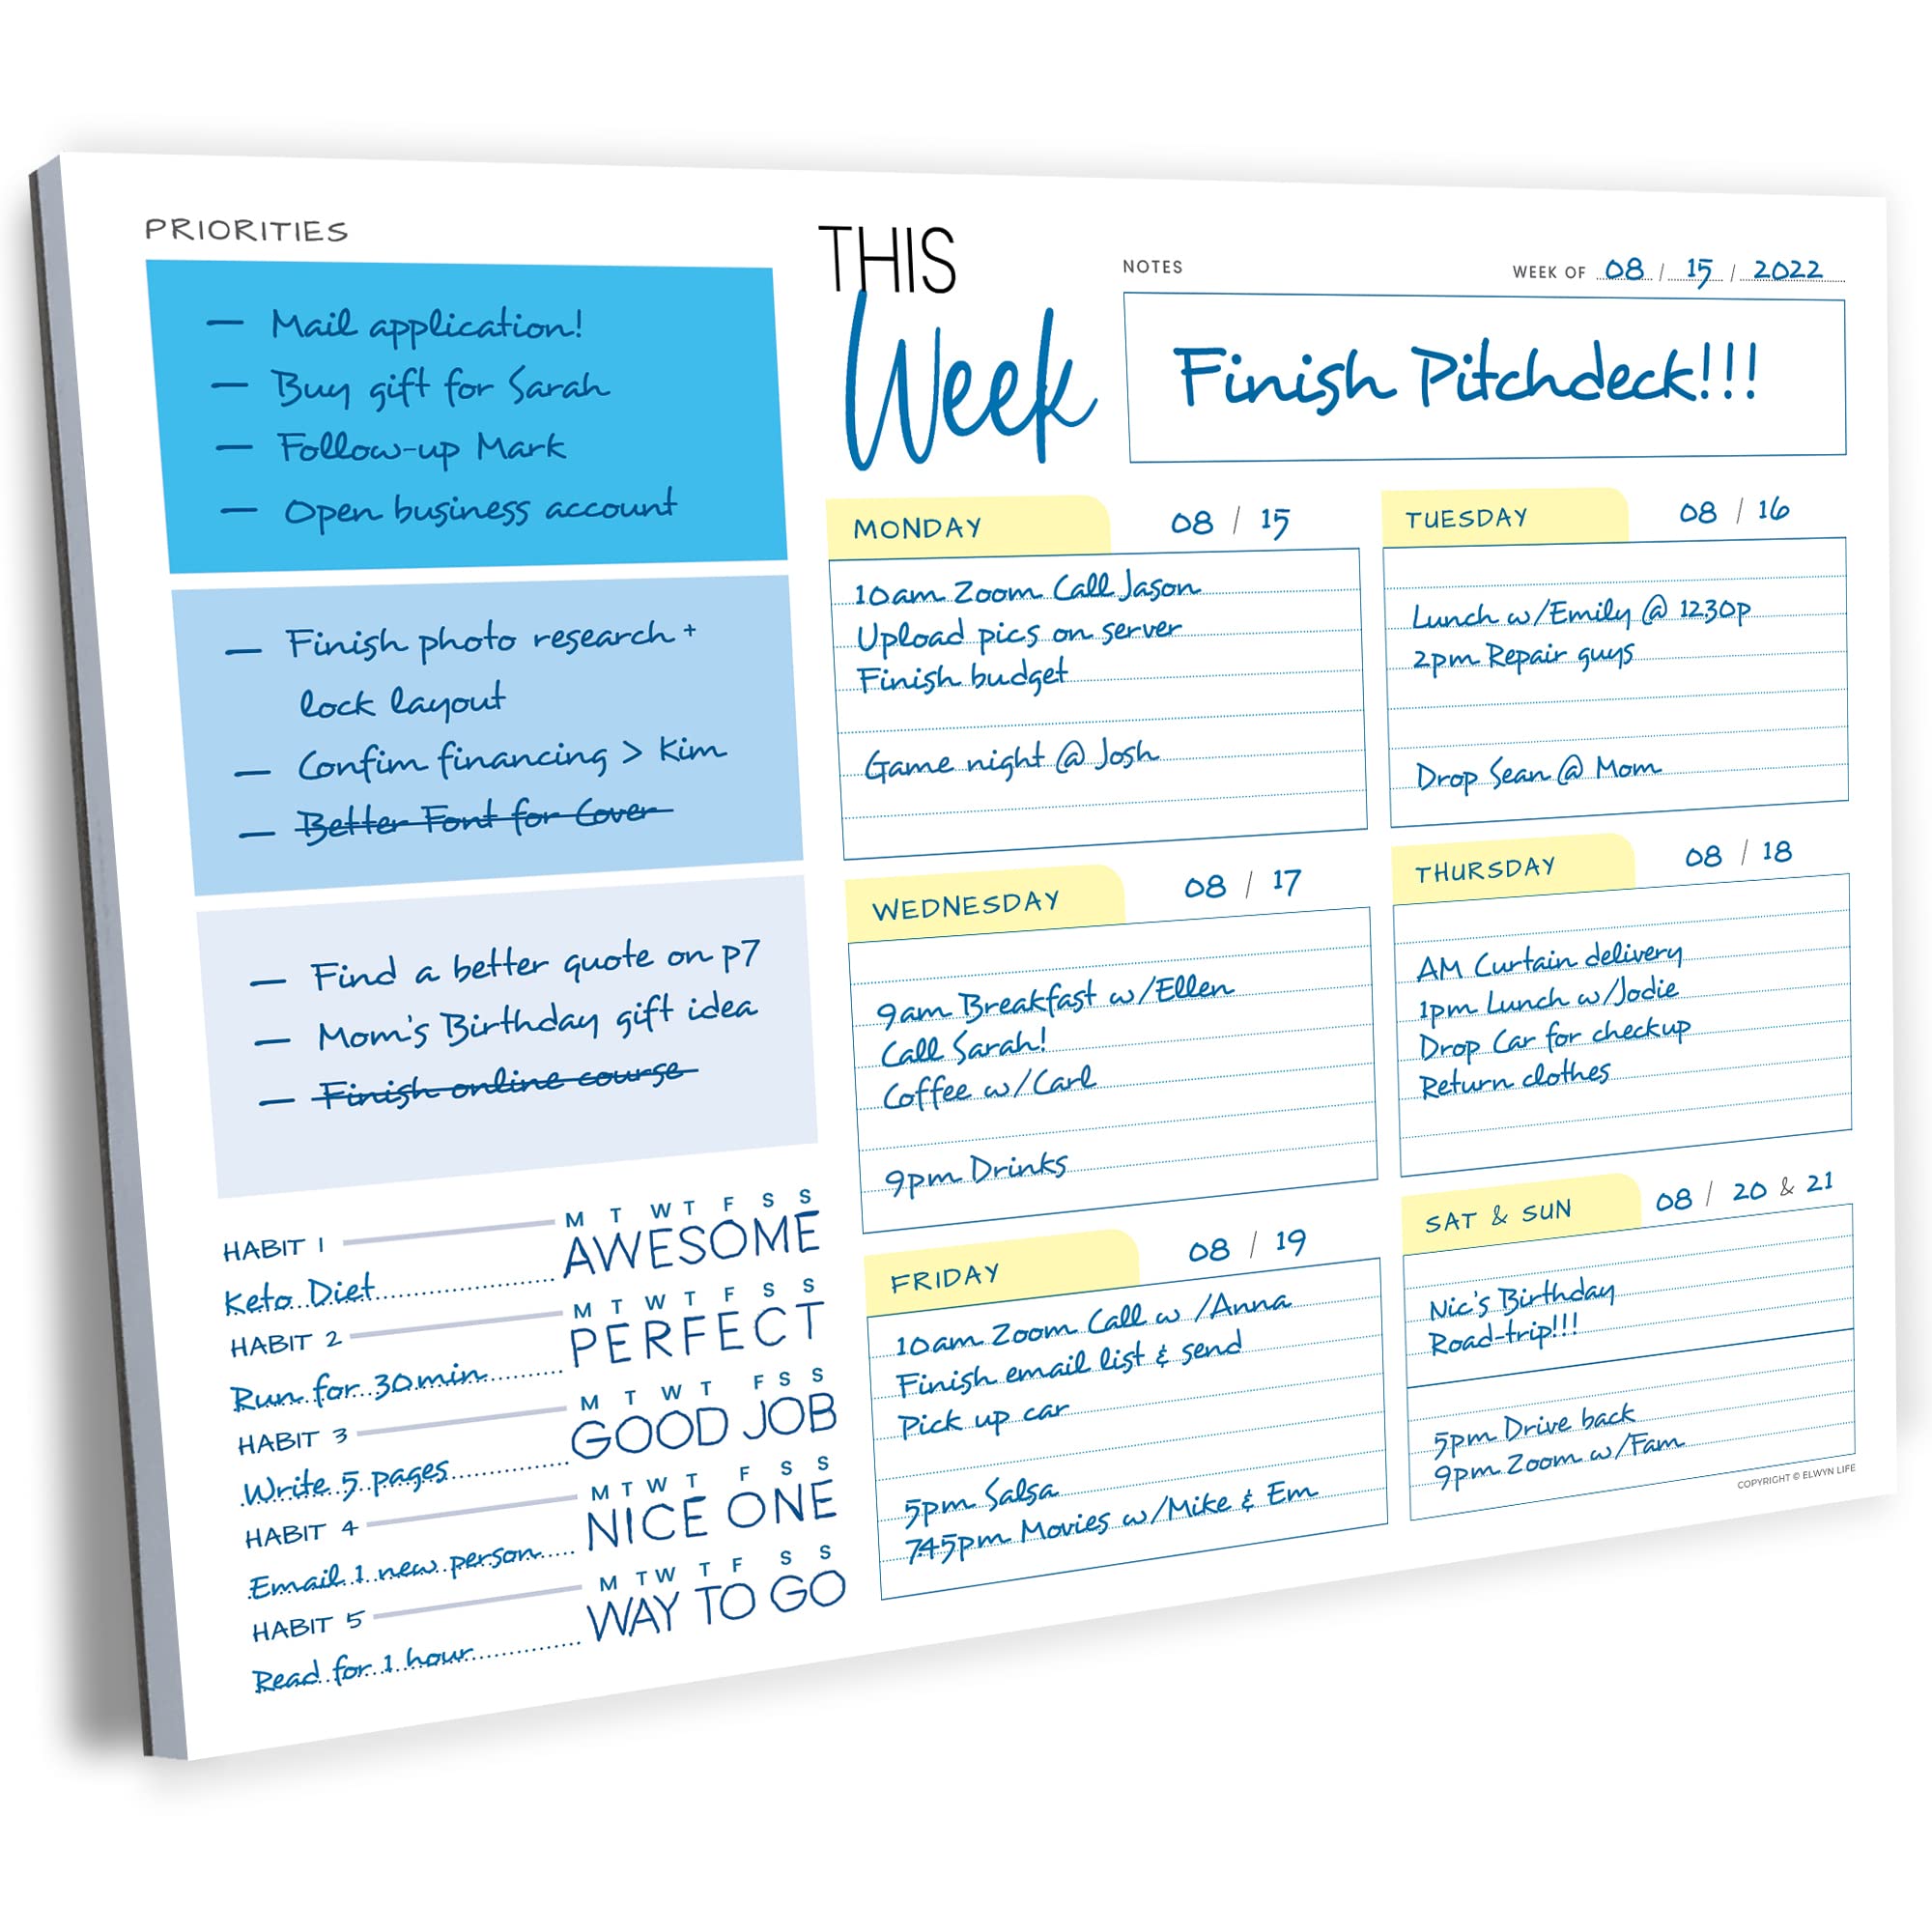 PRIORITIES
— Mail application!
— Buy gift for Sarah
— Follow-up Mark
— Open business account
— Finish photo research +
lock layout
— Confim financing > Kim
— Better Font for Cover
— Find a better quote on p7
— Mom's Birthday gift idea
— Finish online course
HABIT 1
M T W T F S S
AWESOME
Keto Diet
HABIT 2
M T W T F S S
PERFECT
Run for 30min
HABIT 3
M T W T F S S
GOOD JOB
Write 5 pages
HABIT 4
M T W T F S S
NICE ONE
Email 1 new person
HABIT 5
M T W T F S S
WAY TO GO
Read for 1 hour
THIS
Week
NOTES
WEEK OF 08 / 15 / 2022
Finish Pitchdeck!!!
MONDAY 08 / 15
10am Zoom Call Jason
Upload pics on server
Finish budget
Game night @ Josh
TUESDAY 08 / 16
Lunch w/Emily @ 1230p
2pm Repair guys
Drop Sean @ Mom
WEDNESDAY 08 / 17
9am Breakfast w/Ellen
Call Sarah!
Coffee w/Carl
9pm Drinks
THURSDAY 08 / 18
AM Curtain delivery
1pm Lunch w/Jodie
Drop Car for checkup
Return clothes
FRIDAY 08 / 19
10am Zoom Call w /Anna
Finish email list & send
Pick up car
5pm Salsa
745pm Movies w/Mike & Em
SAT & SUN 08 / 20 & 21
Nic's Birthday
Road-trip!!!
5pm Drive back
9pm Zoom w/Fam
COPYRIGHT © ELWYN LIFE